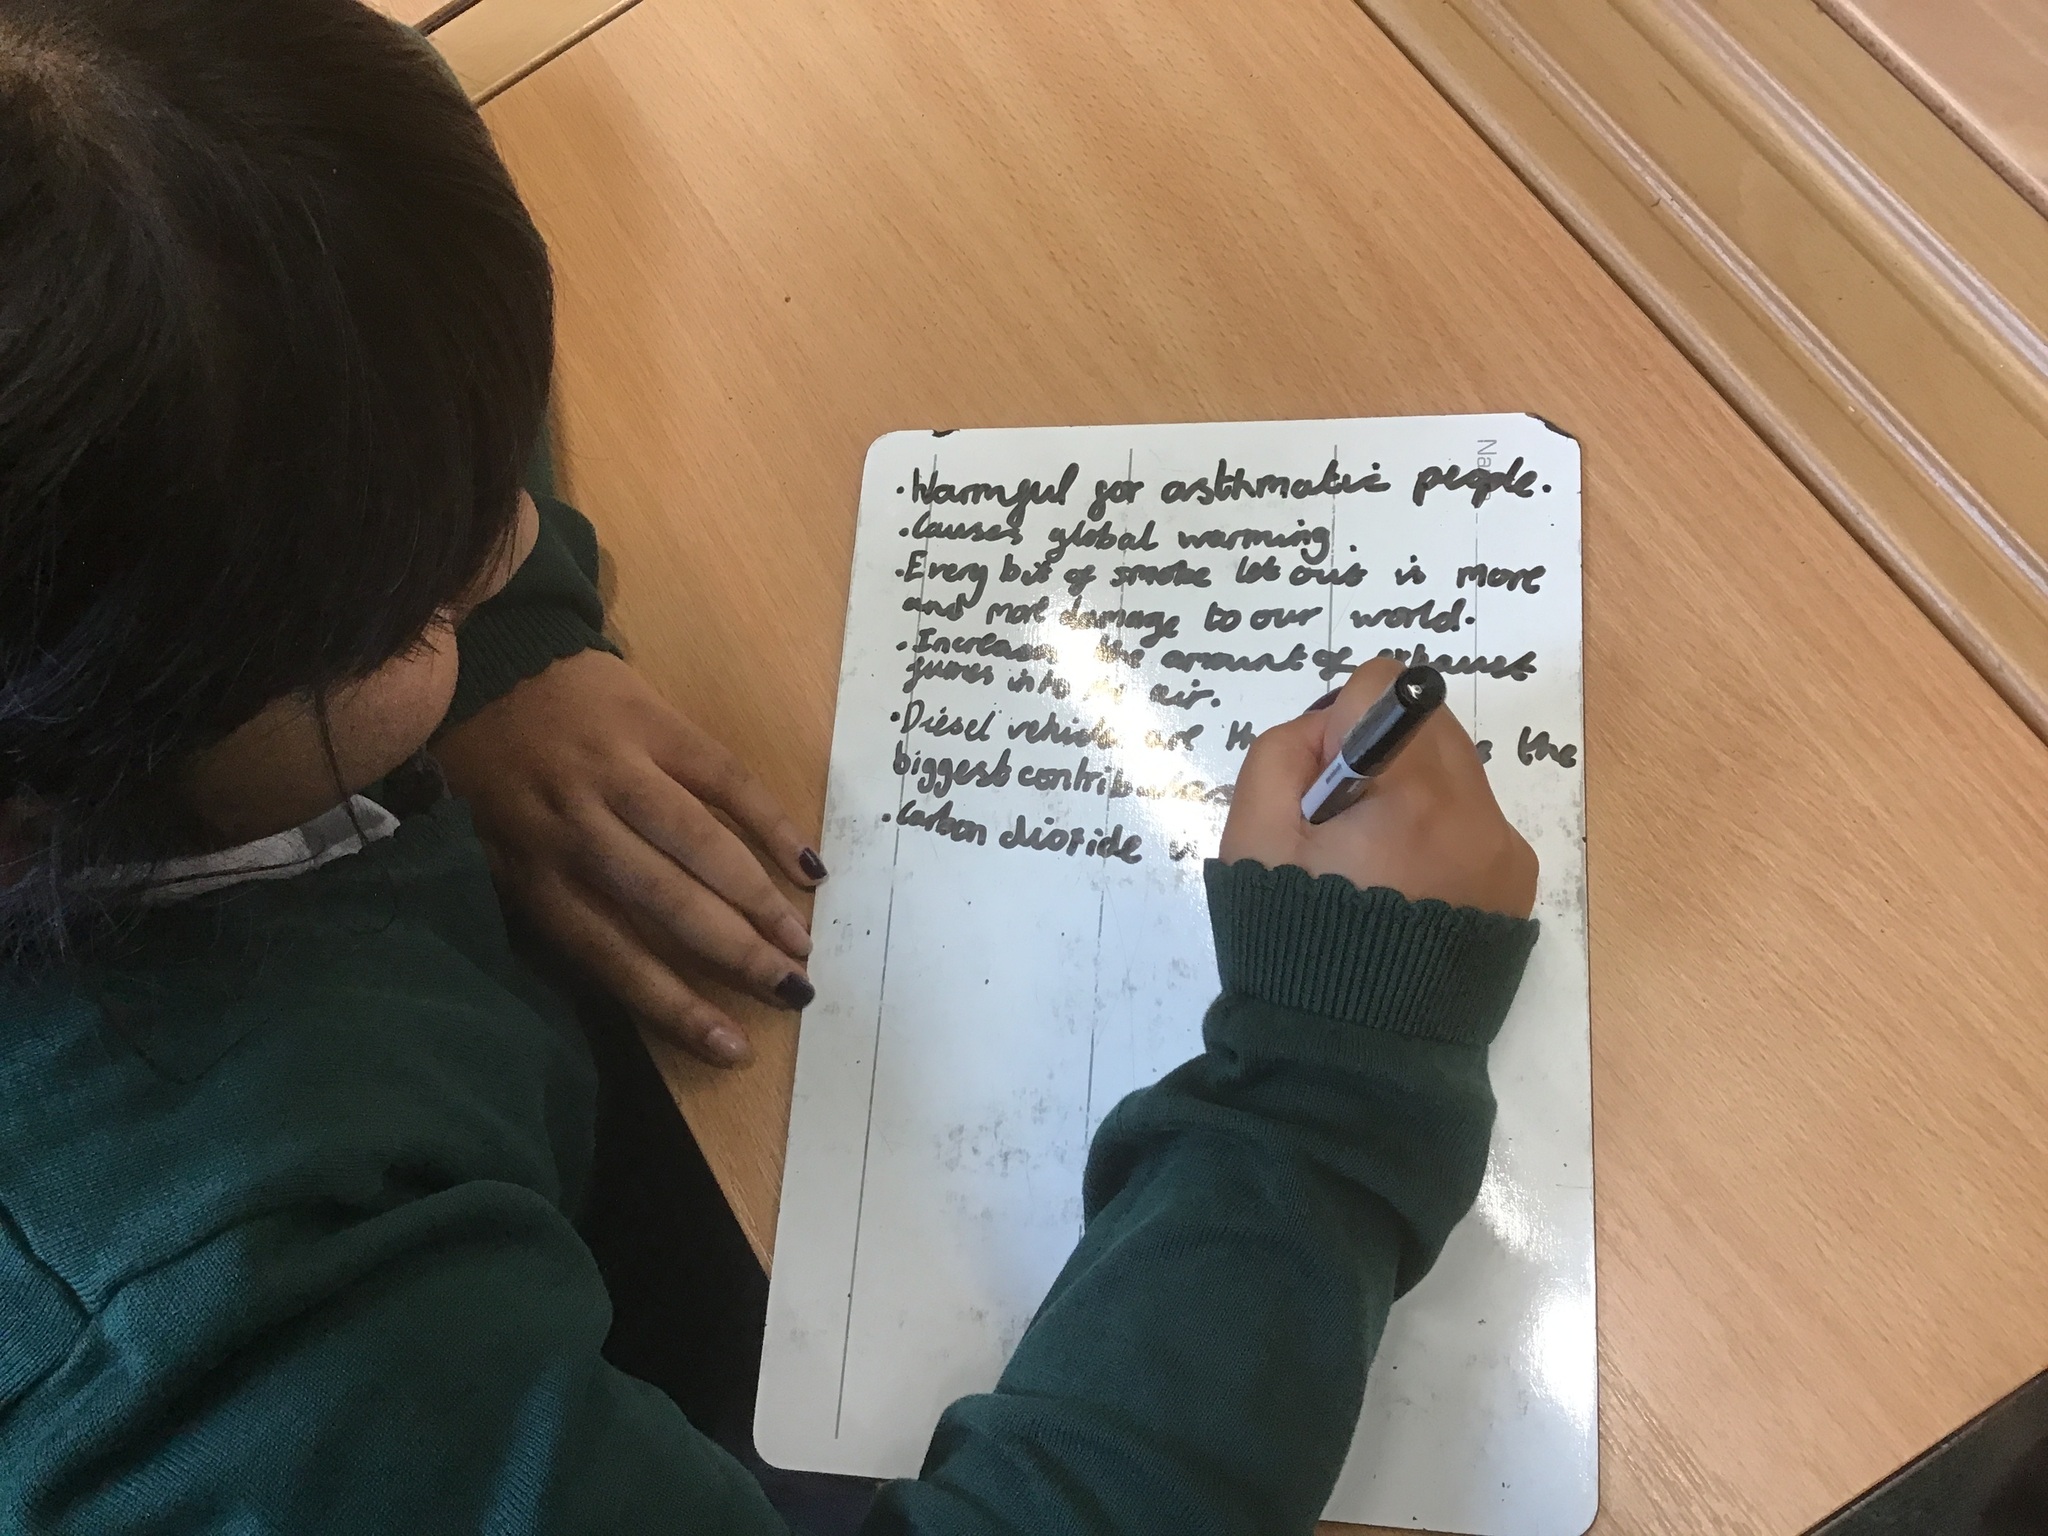 • Harmful for asthmatic people.
• Causes global warming.
• Every bit of smoke let out is more
and more damage to our world.
• Increases the amount of exhaust
fumes into air.
• Diesel vehicles are the
biggest contributers
• Carbon dioxide
Na